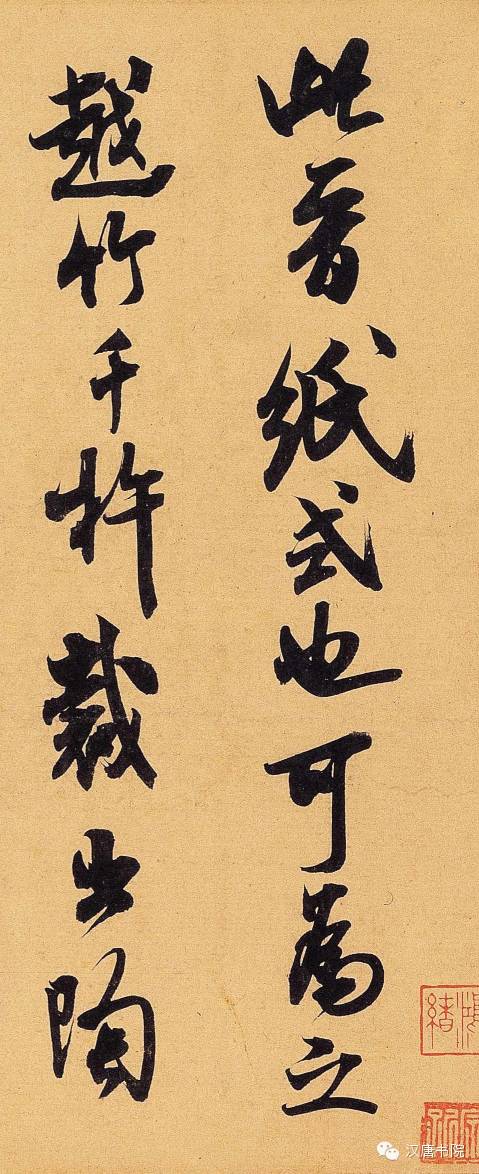 此晉紙式也可為之
越竹千杵裁出陶
汉唐书院